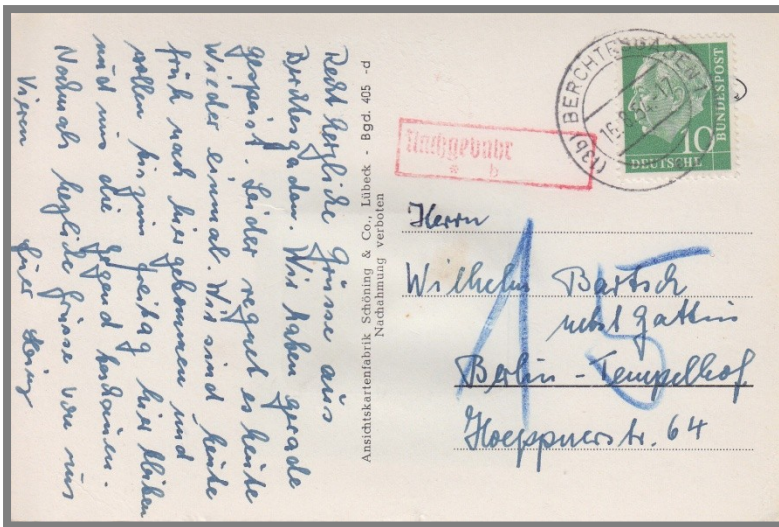 Recht herzliche Grüsse aus
Berchtesgaden. Wir haben gerade
gespeist. Leider regnet es heute
wieder einmal. Wir sind heute
früh nach hier gekommen und
wollen bis zum Freitag hier bleiben
und uns die Gegend beschauen.
Nochmals herzliche Grüsse von uns
Vieren
Ansichtskartenfabrik Schöning & Co., Lübeck - Bgd. 405 -d
Nachahmung verboten
Nachgebühr
(13b) BERCHTESGADEN
10
DEUTSCHE
BUNDESPOST
15
Herrn
Wilhelm Bartsch
nebst Gattin
Berlin - Tempelhof
Hoeppnerstr. 64